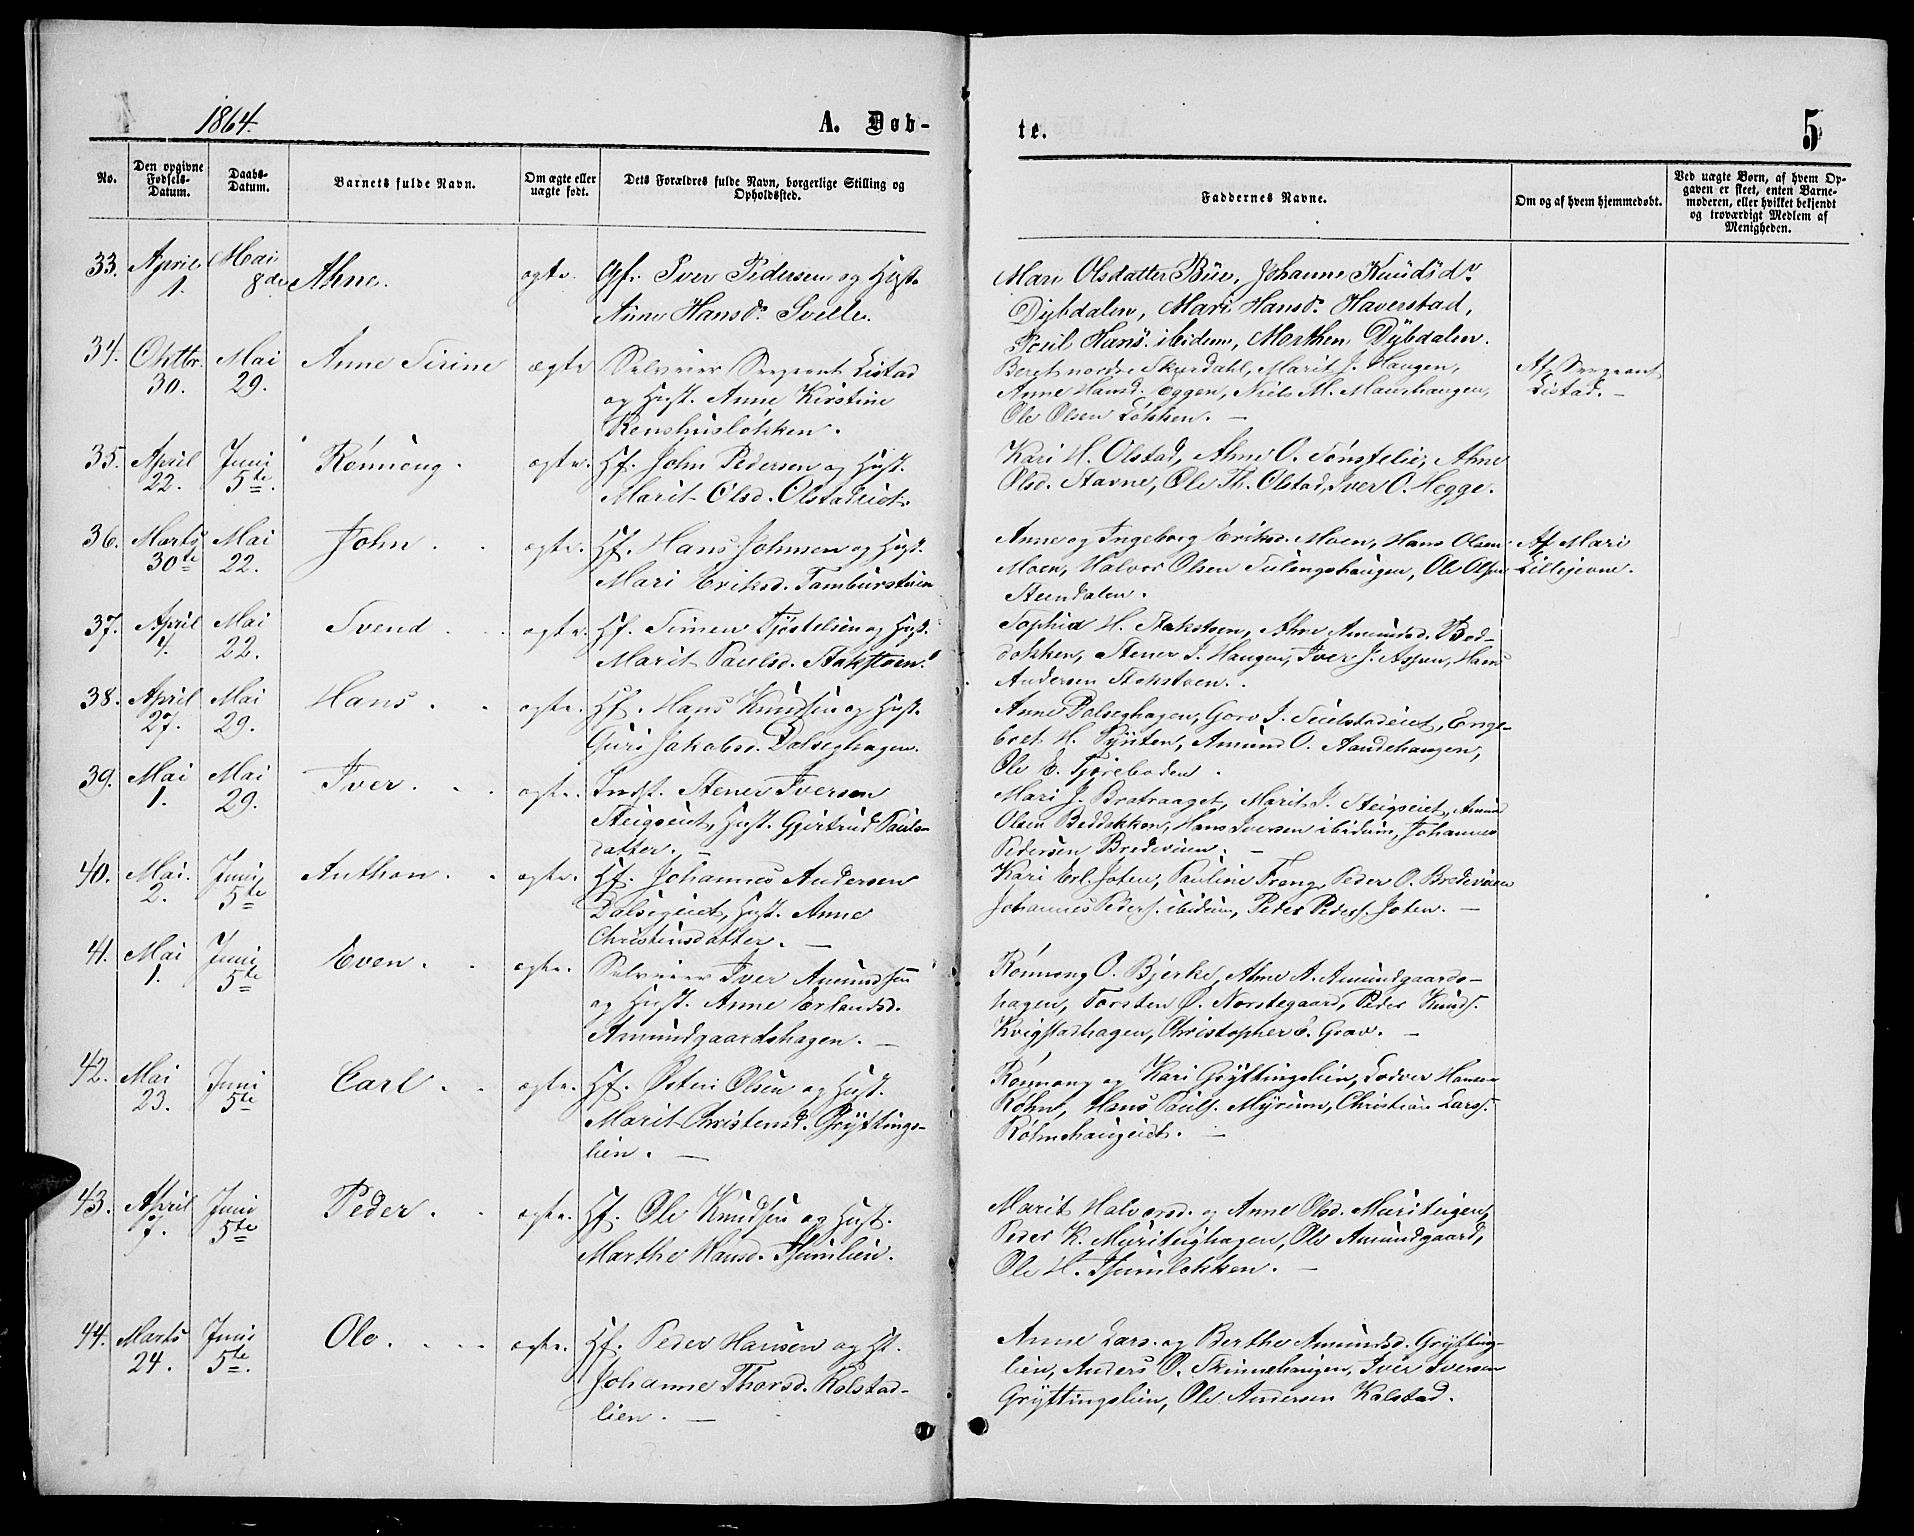 1864.
A. Døb-
te.
5
No.
Den opgivne Fødsels-Datum.
Daabs-Datum.
Barnets fulde Navn.
Om ægte eller uægte født.
Dets Forældres fulde Navn, borgerlige Stilling og Opholdssted.
Faddernes Navne.
Om og af hvem hjemmedøbt.
Ved uægte Børn, af hvem Opgaven er skeet, enten Barnemoderen, eller hvilket bekjendt og troværdigt Medlem af Menigheden.
33. April 1. Mai 8de Ahne. ægte. Gf. Iver Pedersen og Hust.
Anne Hansd.
Mari Olsdatter Büe, Johanne Knudsd.
Dybdalen, Mari Hansd. Haverstad,
Poul Hans. ibidem, Morthen Dybdalen.
34. Oktbr. 30. Mai 29. Anne Sirine ægte Selveier Sergeant Listad
og Hust. Anne Kirstine
Renshusløkken.
Beret nordre Skurdahl, Marit J. Haugen,
Anne Hansd. Eggen, Niels M. Maurhaugen,
Ole Olsen Løkken. —
Af Sergeant
Listad. —
35. April 22. Juni 5te. Rønnoug. ægte. Hf. John Pedersen og Hust.
Marit Olsd. Olstadeiet.
Kari H. Olstad, Ahne O. Tønstelie, Ahne
Olsd. Stavne, Ole Th. Olstad, Iver O. Hegge.
36. Marts 30te Mai 22. John. ægte. Hf. Hans Johnsen og Hust.
Mari Eriksd. Tamburstuen
Anne og Ingeborg Eriksd. Moen, Hans Olsen
Moen, Halvor Olsen Sulengshaugen, Ole Olsen
Steendalen.
Af Mari
Lillejevne.
37. April 1. Mai 22. Svend. ægte. Hf. Simen Tjøstelsen og Hust.
Marit Paulsd. Stakstoen.
Sophia H. Stakstoen, Ahne Amundsd. Bød-
dokken, Stener J. Haugen, Iver J. Aspen, Hans
Andersen Stakstoen.
38. April 27. Mai 29. Hans. ægte. Hf. Hans Knudsen og Hust.
Guri Jakobsd. Dalseghagen.
Anne Dalseghagen, Goro J. Sulstadeiet, Enge-
bret H. Synten, Amund O. Aandehaugen,
Ole E.
39. Mai 1. Mai 29. Iver. ægte. Indst. Stener Iversen
Steigseiet, Hust. Gjertrud Pauls-
datter. —
Mari J. Bratvaaget, Marit J. Steigseiet, Amund
Olsen Beddokken, Hans Iversen ibidem, Johannes
Pedersen Bredeveien. —
40. Mai 2. Juni 5te Anthon. ægte. Hf. Johannes Andersen
Dalsegeiet, Hust. Anne
Christensdatter. —
Kari Erl. Joten, Pauline Freng, Peder O. Bredeveien
Johannes Peders. ibidem, Peder Peders. Joten. —
41. Mai 1. Juni 5te Even. ægte. Selveier Iver Amundsen
og Hust. Anne Erlandsd.
Amundgaardshagen. —
Rønnoug O. Bjerke, Ahne A. Amundgaards-
hagen, Torsten Ø. Norstegaard, Peder Knuds.
Kvigstadhagen, Christopher E. Grav. —
42. Mai 23. Juni 5te Carl. ægte. Hf. Østen Olsen og Hust.
Marit Christensd. Gryttings-
lien. —
Rønnoug og Kari Gryttingslien, Lodver Hansen
Røhne, Hans Pauls. Myrum, Christian Lars.
Røhnehaugeiet. —
43. April 7. Juni 5te Peder. ægte. Hf. Ole Knudsen og Hust.
Marthe Hansd. Tjumlien.
Marit Halvorsd. og Anne Olsd. Muriteigen,
Peder K. Myriteighagen, Ole Amundgaard,
Ole H. Tjumløkken. —
44. Marts 24. Juni 5te. Ole. ægte. Hf. Peder Hansen og H.
Johanne Thorsd. Kalstad-
lien. —
Anne Lars. og Berthe Amundsd. Grytting-
lien, Anders O. Skinnehaugen, Iver Iversen
Gryttingslien, Ole Andersen Kalstad.